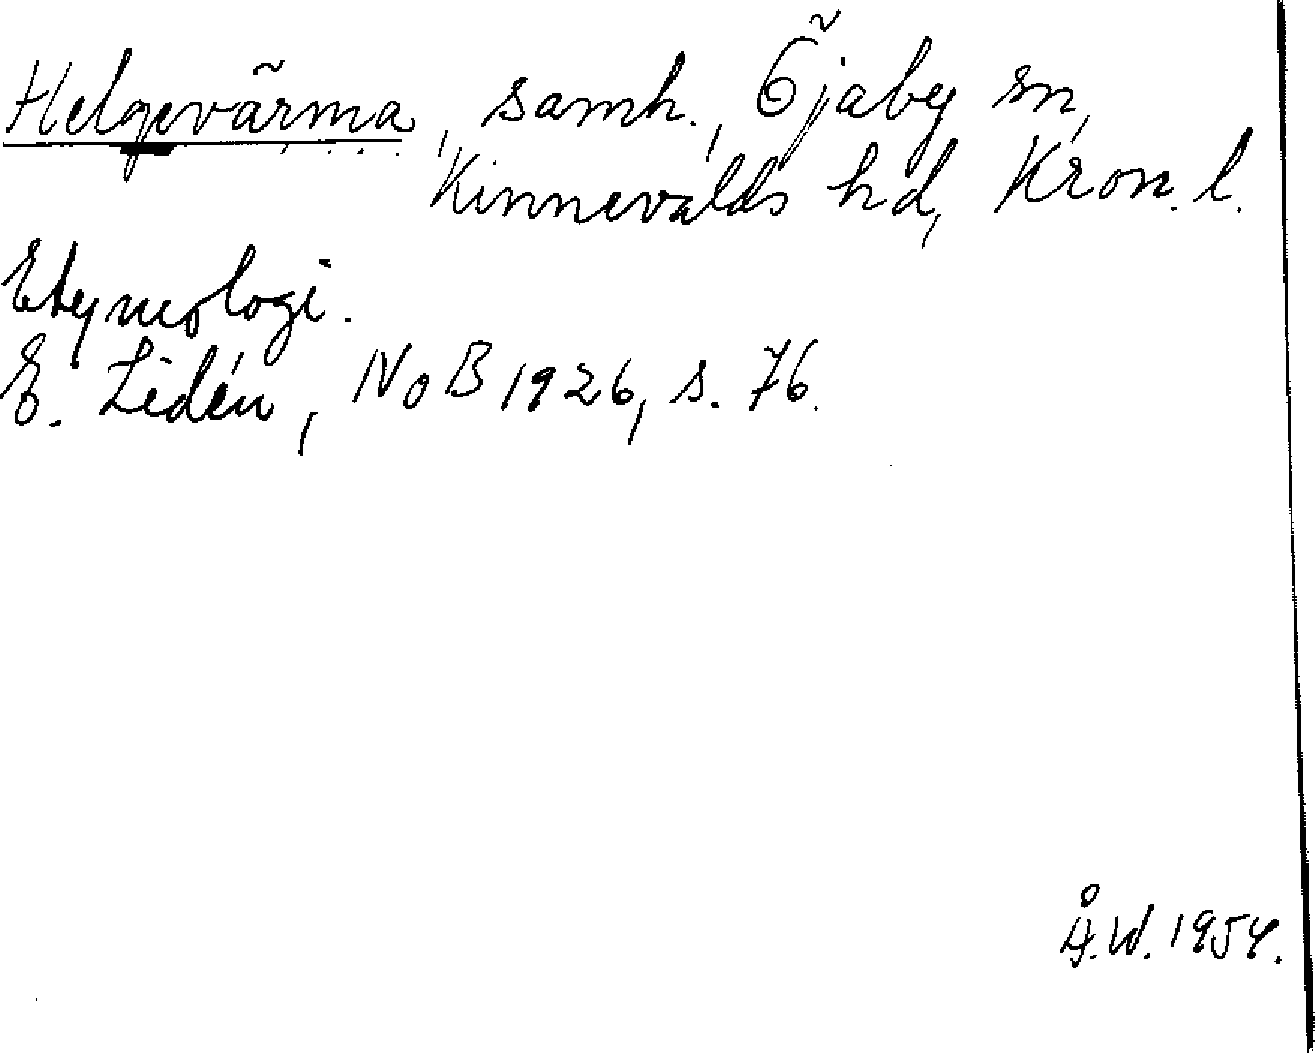 Helgevärma, samh., Öjaby sn,
Kinnevalds hd, Kron. l.
Etymologi.
E. Lidén, NoB 1926, s. 76.
Å.W. 1954.